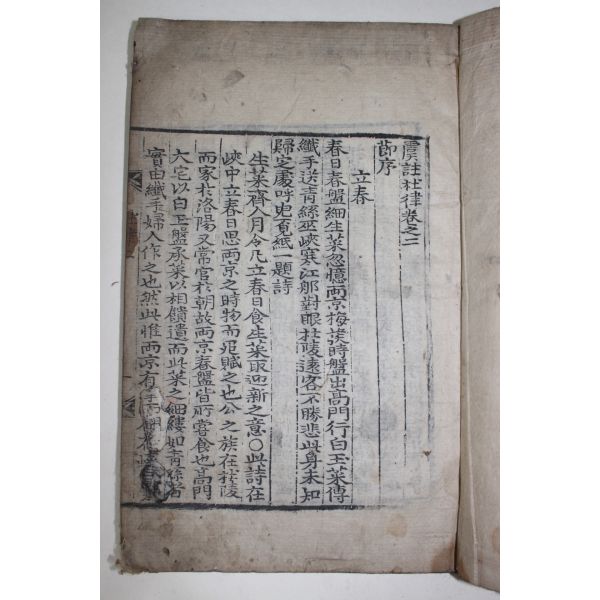 虞註杜律卷之二
節序
立春
春日春盤細生菜忽憶兩京梅發時盤出高門行白玉菜傳
纖手送青絲巫峽寒江那對眼杜陵遠客不勝悲此身未知
歸定處呼兒覓紙一題詩
生菜齊人月令凡立春日食生菜取迎新之意〇此詩在
峽中立春日思兩京之時物而爲賦之也公之族在杜陵
而家於洛陽又常官於朝故兩京春盤皆所嘗食也高門
大宅以白玉盤承菜以相饋遺而此菜之細縷如青絲者
實由纖手婦人作之也然此惟兩京有